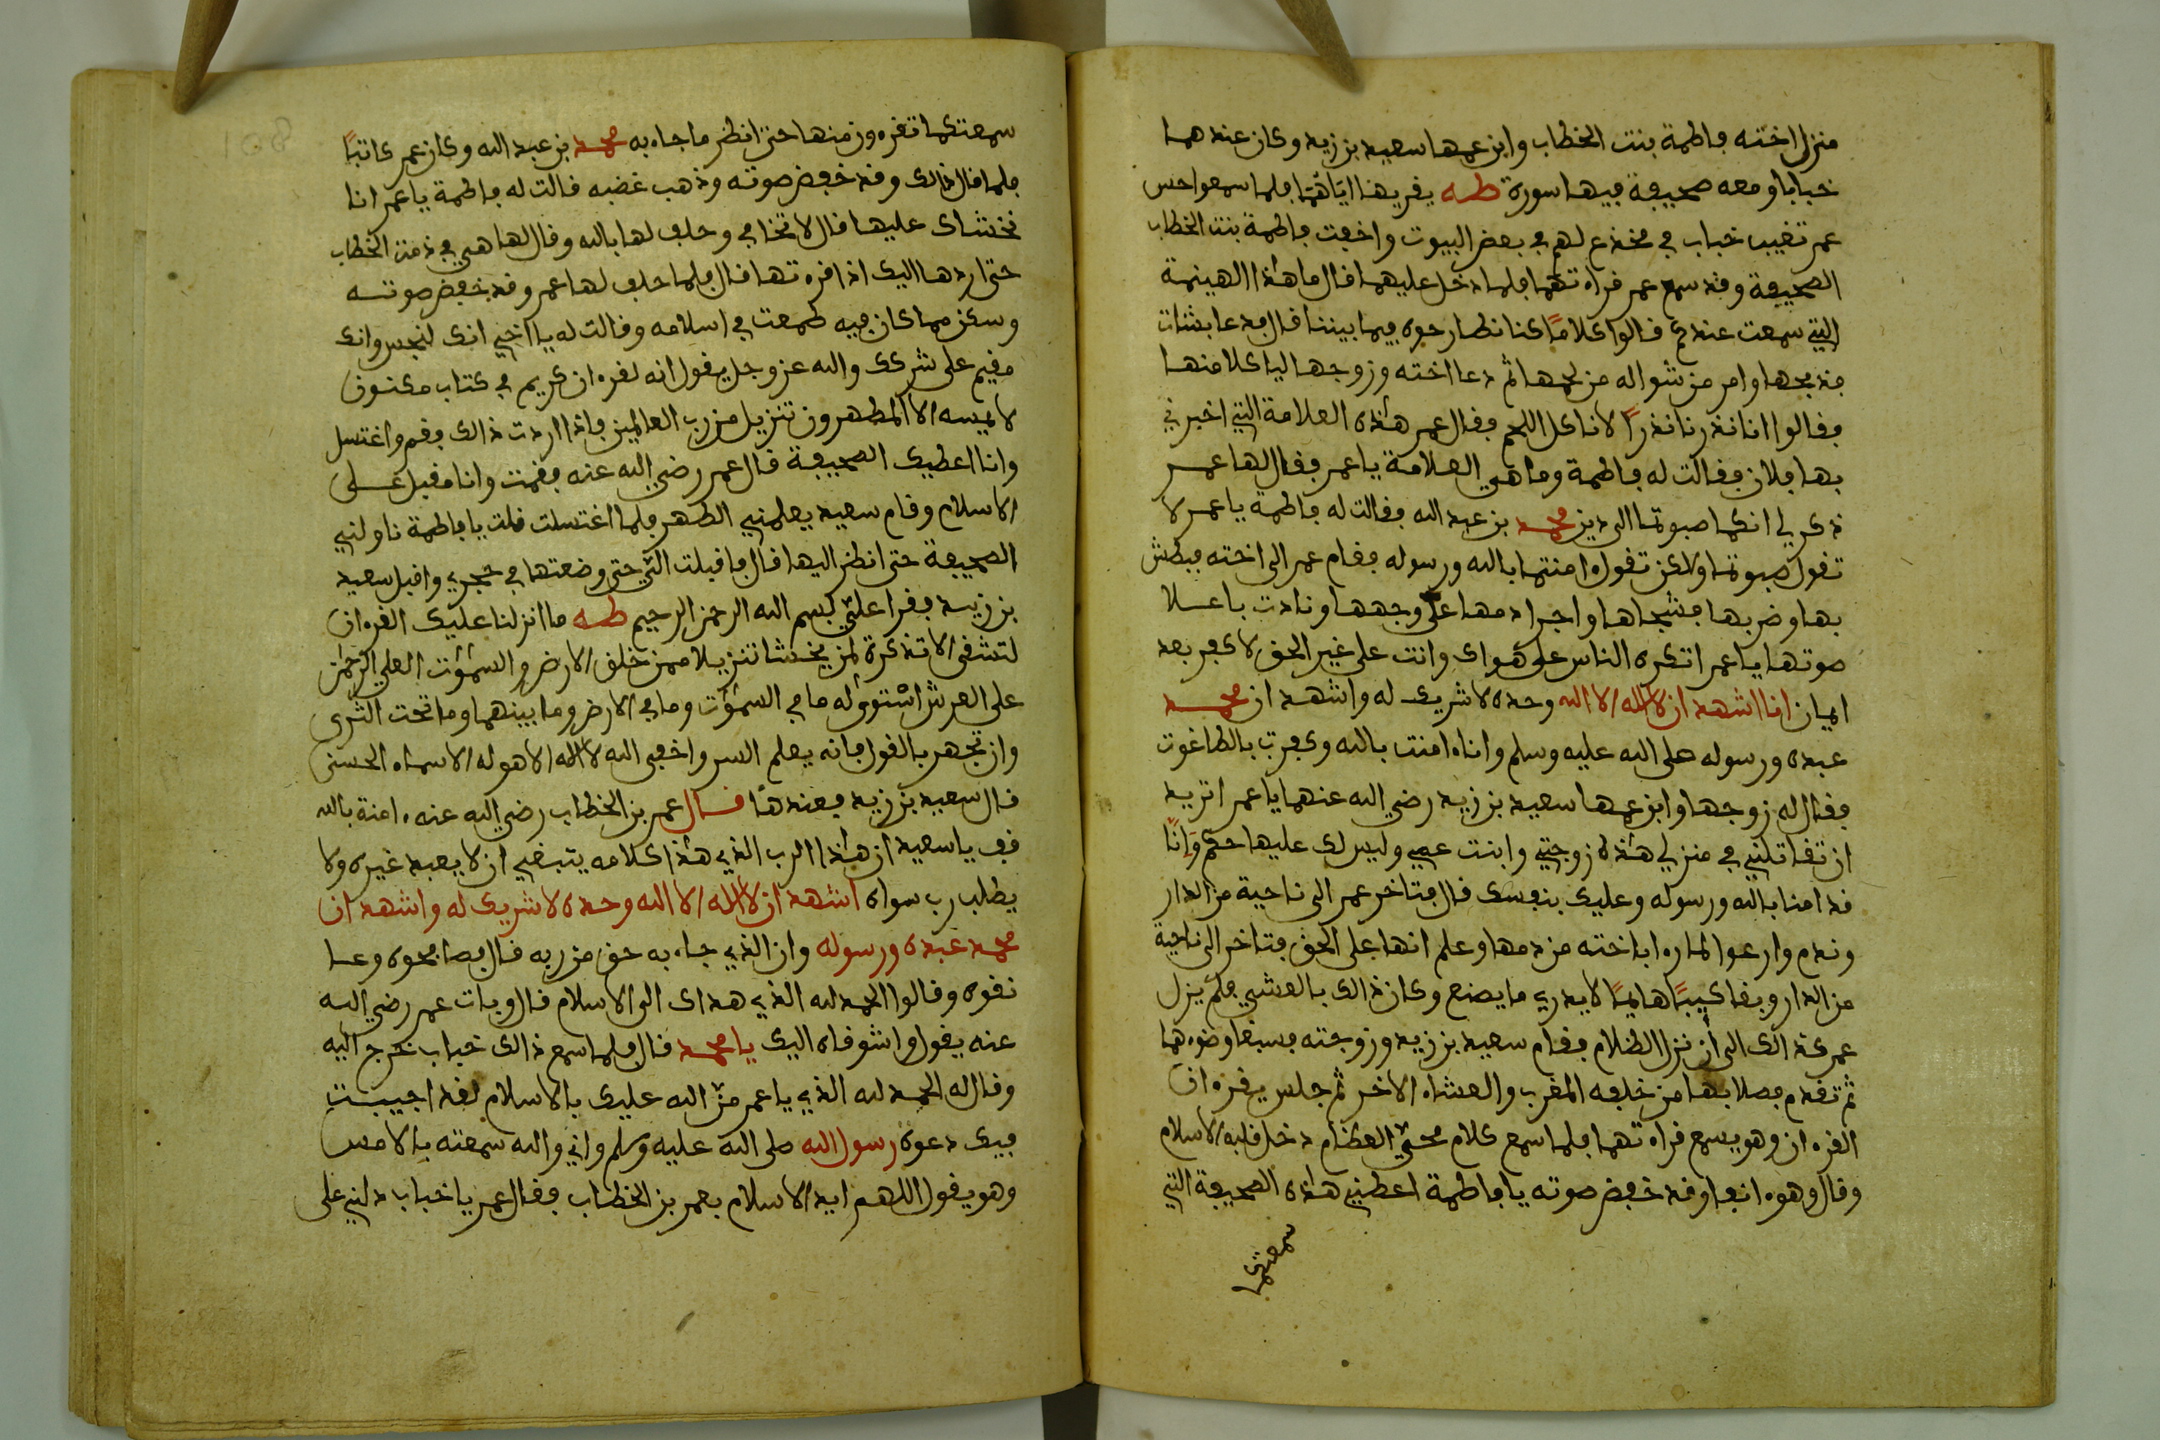 منزل اخته فاطمة بنت الخطاب وابن عمها سعيد بن زيد وكان عندهما
خبابا ومعه صحيفة فيها سورة طه يقريها اياهما فلما سمعوا حس
عمر تغيب خباب في مخذع لهم في بعض البيوت واخفت فاطمة بنت الخطاب
الصحيفة وقد سمع عمر قراءتهما فلما دخل عليهما قال ما هذا الهينمة
التي سمعت عندكم قالوا كلاما كنا نطارحوه فيما بيننا قال فدعا بشات
فذبحها وامر من شواله من لحمها ثم دعا اخته وزوجها ليا كلا منها
فقالوا انا نذرنا نذرا لا ناكل اللحم فقال عمر هذه العلامة التي اخبرني
بها فلان فقالت له فاطمة وما هي العلامة يا عمر فقال لها عمر
ذكر لي انكما صبوتما الى دين محمد بن عبد الله فقالت له فاطمة يا عمر لا
تقول صبوتما ولاكن تقول امنتما بالله ورسوله فقام عمر الى اخته فبطش
بها وضربها فشجاها واجرا دمها على وجهها ونادت باعلا
صوتها يا عمر اتكره الناس على هواك وانت على غير الحق لا كفر بعد
ايمان انا اشهد ان لا اله الا الله وحده لا شريك له واشهد ان محمد
عبده ورسوله صلى الله عليه وسلم وانا امنت بالله وكفرت بالطاغوت
فقال له زوجها وابن عمها سعيد بن زيد رضي الله عنهما يا عمر اتريد
ان تقاتلني في منزلي هذه زوجتي وابنت عمي وليس لك عليها حكم وانا
قد امنا بالله ورسوله وعليك بنفسك قال فتاخر عمر الى ناحية من الدار
وندم وارعوا لما راه باخته من دمها وعلم انها على الحق فتاخر الى ناحية
من الدار وبقا كييبا هايما لا يدري ما يصنع وكان ذالك بالعشي فلم يزل
عمر كذالك الى أن نزل الظلام فقام سعيد بن زيد وزوجته فسبغا وضوءهما
ثم تقدم فصلا بها من خلفه المغرب والعشاء الاخر ثم جلس يقرءان
القرءان وهو يسمع قراءتهما فلما سمع كلام محي العظام دخل قلبه الاسلام
وقال وهوه انفا وقد خفض صوته يا فاطمة اعطيني هذه الصحيفة التي
سمعتكما
سمعتكما تقرءون منها حتى انظر ما جاء به محمد بن عبد الله وكان عمر كاتبا
فلما قال ذالك وقد خفض صوته وذهب غضبه قالت له فاطمة يا عمر انا
نخشاك عليها قال لا تخافي وحلف لها بالله وقال لها هي في ذمة الخطاب
حتى اردها اليك اذا قرءتها قال فلما حلف لها عمر وقد خفض صوته
وسكن مما كان فيه طمعت في اسلامه وقالت له يا اخي انك لنجس وانك
مقيم على شركك والله عز وجل يقول انه لقرءان كريم في كتاب مكنون
لا يمسه الا المطهرون تنزيل من رب العالمين فاذا اردت ذالك فقم واغتسل
وانا اعطيك الصحيفة قال عمر رضي الله عنه فقمت وانا مقبل على
الاسلام وقام سعيد يعلمني الطهر فلما اغتسلت قلت يا فاطمة ناوليني
الصحيفة حتى انظر اليها قال فاقبلت الي حتى وضعتها في حجري واقبل سعيد
بن زيد فقرا علي بسم الله الرحمن الرحيم طه ما انزلنا عليك القرءان
لتشقى الا تذكرة لمن يخشا تنزيلا ممن خلق الارض والسموت العلى الرحمن
على العرش استوى له ما في السموت وما في الارض وما بينهما وما تحت الثرى
وان تجهر بالقول فانه يعلم السر واخفى الله لا اله الا هو له الاسماء الحسنى
قال سعيد بن زيد فعندها قال عمر بن الخطاب رضي الله عنه ءامنة بالله
قف يا سعيد ان هذا الرب الذي هذا كلامه يتبغي ان لا يعبد غيره ولا
يطلب رب سواه اشهد ان لا اله الا الله وحده لا شريك له واشهد ان
محمد عبده ورسوله وان الذي جاء به حق من ربه قال فصافحوه وعا
نقوه وقالوا الحمد لله الذي هداك الى الاسلام قال وبات عمر رضي الله
عنه يقول واشوقاه اليك يا محمد قال فلما سمع ذالك خباب خرج اليه
وقال له الحمد لله الذي يا عمر من الله عليك بالاسلام لقد اجيبت
فيك دعوة رسول الله صلى الله عليه وسلم واني والله سمعته بالامس
وهو يقول اللهم ايد الاسلام بعمر بن الخطاب فقال عمر يا خباب دلني على